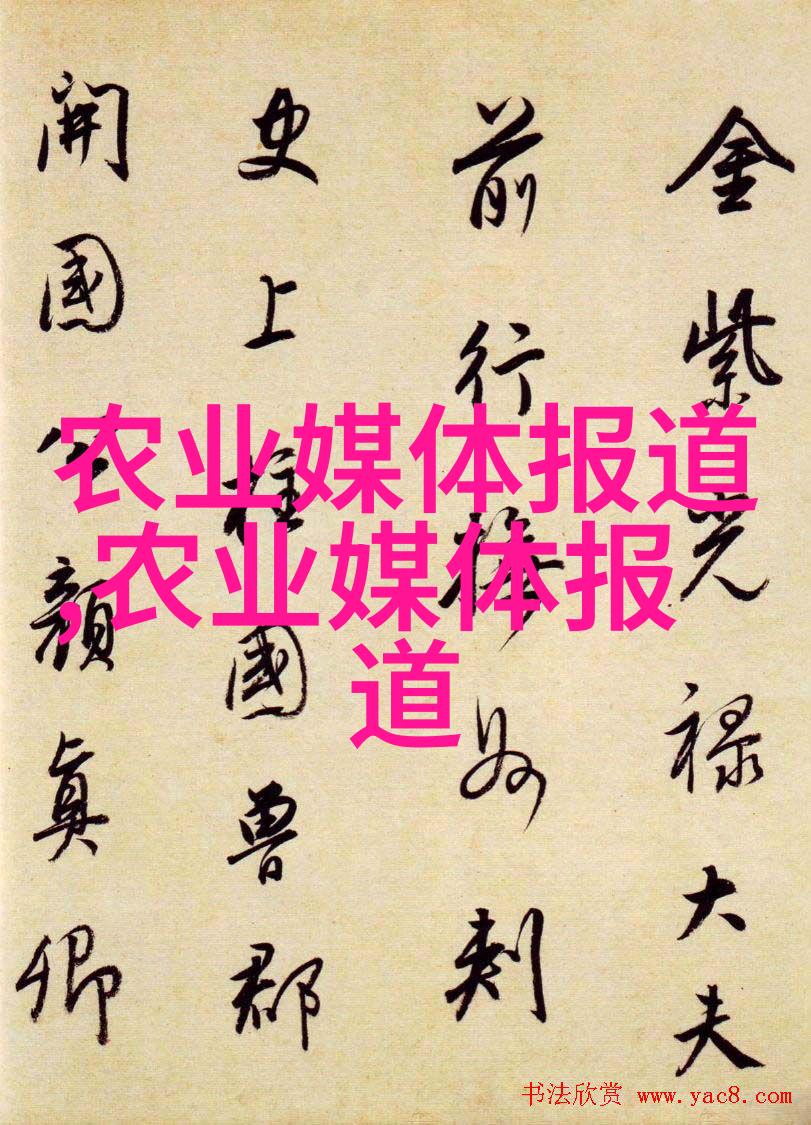 金紫光禄大夫
前行撫州刺
史上柱國魯郡
開國公顏真卿
农业媒体报道
,农业媒体报
道
书法欣赏 www.yac8.com